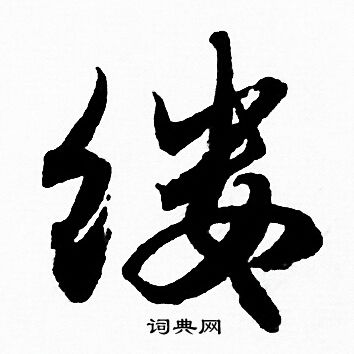 缕
词典网